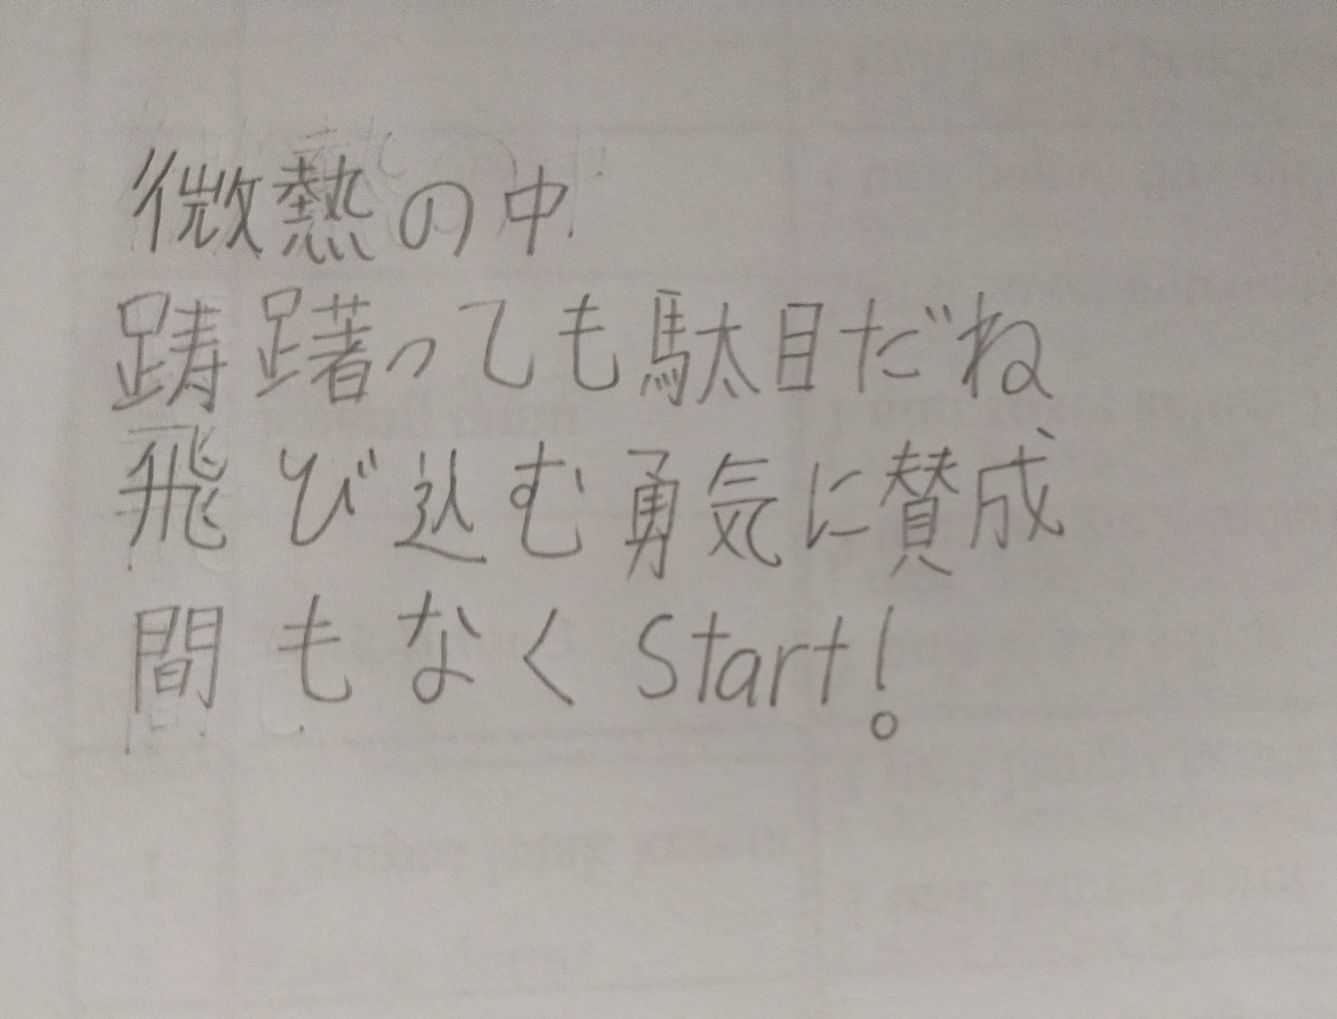 微熱の中
踌躇っても駄目だね
飛び込む勇気に賛成
間もなくStart!